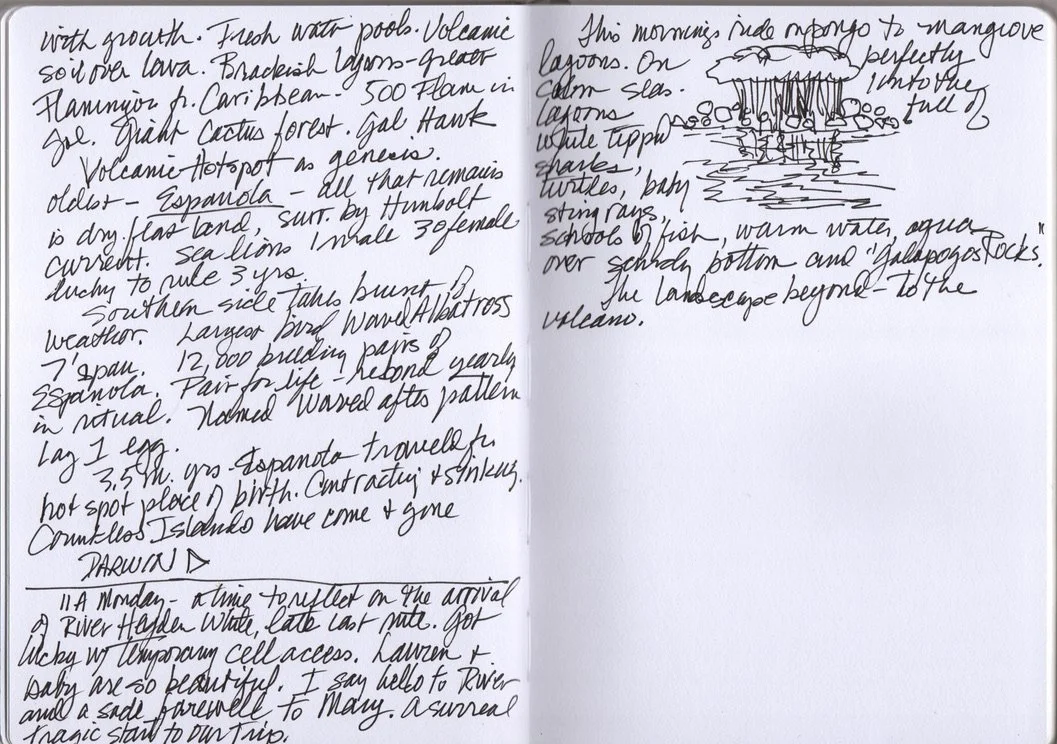 with growth. Fresh water pools. Volcanic
soil over lava. Brackish lagoons - greater
Flamingos fr. Caribbean. 500 Flam in
Gal. Giant Cactus forest. Gal Hawk
Volcanic Hotspot as genesis.
oldest - Espanola - all that remains
is dry flat land, surr. by Humbolt
current. Sea lions 1 male 30 female
lucky to rule 3 yrs.
Southern side takes brunt of
weather. Largest bird Waved Albatross
7' span. 12,000 breeding pairs of
Espanola. Pair for life - rebond yearly
in ritual. Named Waved after pattern
Lay 1 egg.
3.5 m. yrs. Espanola traveled fr.
hot spot place of birth. Contracting & sinking.
Countless Islands have come & gone
DARWIN
11A Monday - a time to reflect on the arrival
of River Hayden White, late last nite. Got
lucky w/ temporary cell access. Lauren &
baby are so beautiful. I say hello to River
and a sade farewell to Mary. A surreal
tragic start to our trip.
This mornings ride on pongo to mangrove
lagoons. On perfectly
calm seas. into the
lagoons full of
white tipped
sharks,
turtles, baby
sting rays,
schools of fish, warm water, aqua
over sandy bottom and "Galapogos Rocks."
The landscape beyond - to the
volcano.